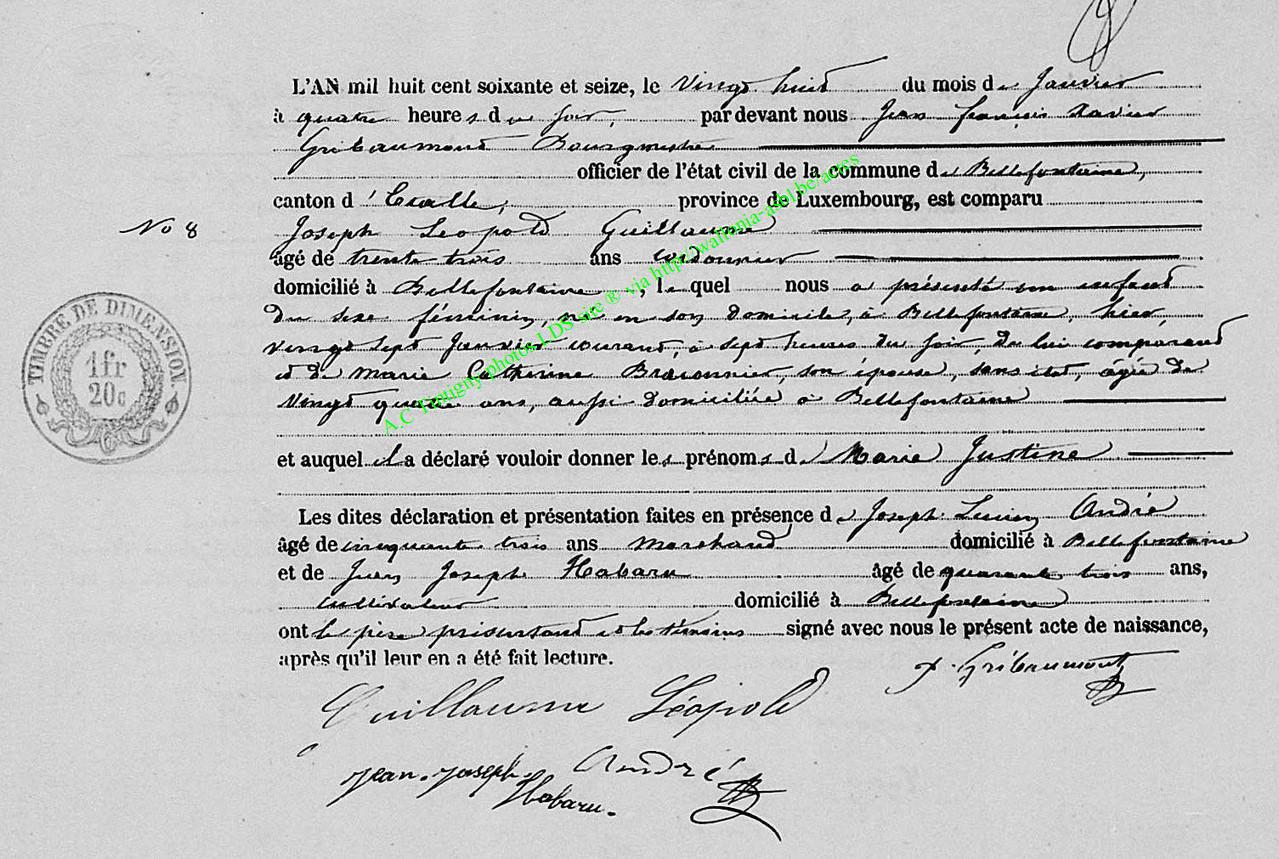 L'AN mil huit cent soixante et seize, le vingt huit du mois de Janvier
à quatre heures du soir, par devant nous Jean françois Xavier
Gribaumont Bourgmestre
officier de l'état civil de la commune de Bellefontaine,
canton d'Etalle, province de Luxembourg, est comparu
No 8
Joseph Léopold Guillaume
âgé de trente trois ans cordonnier
domicilié à Bellefontaine, lequel nous a présenté un enfant
du sexe féminin, né en son domicile, à Bellefontaine, hier,
vingt sept Janvier courant, à sept heures du soir, de lui comparant
et de Marie Catherine Braconnier, son épouse, sans état, âgée de
vingt quatre ans, aussi domiciliée à Bellefontaine
et auquel il a déclaré vouloir donner les prénoms de Marie Justine
Les dites déclaration et présentation faites en présence de Joseph Lucien André
âgé de cinquante trois ans Marchand domicilié à Bellefontaine
et de Jean Joseph Habaru âgé de quarante trois ans,
cultivateur domicilié à Bellefontaine
ont le père présentant et les témoins signé avec nous le présent acte de naissance,
après qu'il leur en a été fait lecture.
X. Gribaumont
Guillaume Léopold
Jean-Joseph André
Habaru.
TIMBRE DE DIMENSION
1 fr
20c
A.C Tintigny photos LDS site ® via http://wallonia-asbl.be/actes